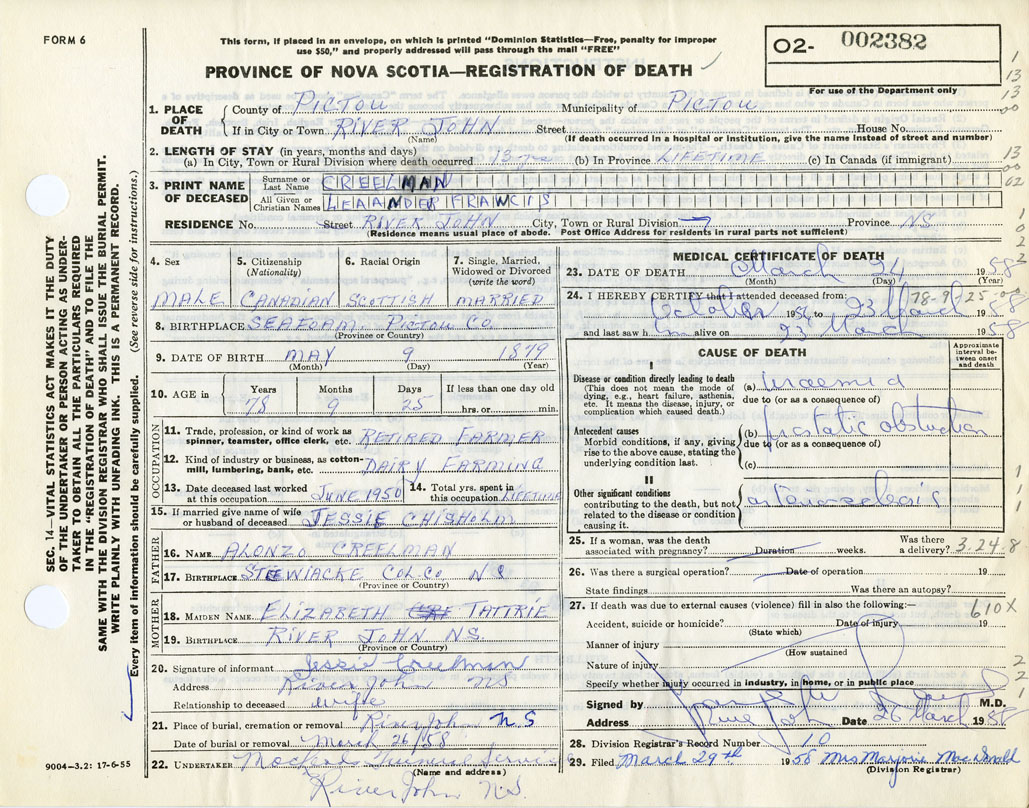 FORM 6
This form, if placed in an envelope, on which is printed "Dominion Statistics—Free, penalty for improper
use $50," and properly addressed will pass through the mail "FREE"
PROVINCE OF NOVA SCOTIA—REGISTRATION OF DEATH
02- 002382
For use of the Department only
SEC. 14—VITAL STATISTICS ACT MAKES IT THE DUTY
OF THE UNDERTAKER OR PERSON ACTING AS UNDER-
TAKER TO OBTAIN ALL THE PARTICULARS REQUIRED
IN THE "REGISTRATION OF DEATH" AND TO FILE THE
SAME WITH THE DIVISION REGISTRAR WHO SHALL ISSUE THE BURIAL PERMIT.
WRITE PLAINLY WITH UNFADING INK. THIS IS A PERMANENT RECORD.
Every item of information should be carefully supplied. (See reverse side for instructions.)
1. PLACE OF DEATH
County of PICTOU Municipality of PICTOU
If in City or Town RIVER JOHN Street House No.
(Name) (If death occurred in a hospital or institution, give the name instead of street and number)
2. LENGTH OF STAY (in years, months and days)
(a) In City, Town or Rural Division where death occurred 13 (b) In Province LIFETIME (c) In Canada (if immigrant)
3. PRINT NAME OF DECEASED
Surname or Last Name CREELMAN
All Given or Christian Names LEAANDER FRANCIS
RESIDENCE No. Street RIVER JOHN City, Town or Rural Division Province NS
(Residence means usual place of abode. Post Office Address for residents in rural parts not sufficient)
4. Sex 5. Citizenship (Nationality) 6. Racial Origin 7. Single, Married, Widowed or Divorced (write the word)
MALE CANADIAN SCOTTISH MARRIED
8. BIRTHPLACE SEAFOAM, PICTOU CO.
(Province or Country)
9. DATE OF BIRTH MAY 9 1879
(Month) (Day) (Year)
10. AGE in Years Months Days If less than one day old
78 9 25 hrs. or min.
OCCUPATION
11. Trade, profession, or kind of work as
spinner, teamster, office clerk, etc. RETIRED FARMER
12. Kind of industry or business, as cotton-
mill, lumbering, bank, etc. DAIRY FARMING
13. Date deceased last worked at this occupation JUNE 1950 14. Total yrs. spent in this occupation LIFETIME
15. If married give name of wife
or husband of deceased JESSIE CHISHOLM
FATHER
16. NAME ALONZO CREELMAN
17. BIRTHPLACE STEEWIACKE COL. CO. N S
(Province or Country)
MOTHER
18. MAIDEN NAME ELIZABETH TATTRIE
19. BIRTHPLACE RIVER JOHN NS.
(Province or Country)
20. Signature of informant Jessie Creelman
Address River John NS
Relationship to deceased wife
21. Place of burial, cremation or removal River John N S
Date of burial or removal March 26/58
22. UNDERTAKER Service
(Name and address)
River John N.S.
9004—3.2: 17-6-55
MEDICAL CERTIFICATE OF DEATH
23. DATE OF DEATH March 24 1958
(Month) (Day) (Year)
24. I HEREBY CERTIFY that I attended deceased from: 78-9-25
October 1956 to 23 March 1958
and last saw him alive on 23 March 1958
CAUSE OF DEATH
Approximate interval between onset and death
I
Disease or condition directly leading to death (a) Uraemia
(This does not mean the mode of dying, e.g., heart failure, asthenia, etc. It means the disease, injury, or complication which caused death.)
due to (or as a consequence of)
Antecedent causes (b) Prostatic obstruction
Morbid conditions, if any, giving rise to the above cause, stating the underlying condition last.
due to (or as a consequence of)
(c)
II
Other significant conditions
contributing to the death, but not related to the disease or condition causing it.
arteriosclerosis
25. If a woman, was the death associated with pregnancy? Duration weeks. Was there a delivery? 3-24-8
26. Was there a surgical operation? Date of operation 19
State findings Was there an autopsy?
27. If death was due to external causes (violence) fill in also the following:— 610X
Accident, suicide or homicide? Date of injury 19
(State which)
Manner of injury
(How sustained
Nature of injury
Specify whether injury occurred in industry, in home, or in public place
Signed by M.D.
Address River John Date 26 March 1958
28. Division Registrar's Record Number 10
29. Filed March 29th 1958 Mrs Marjorie MacDonald
(Division Registrar)